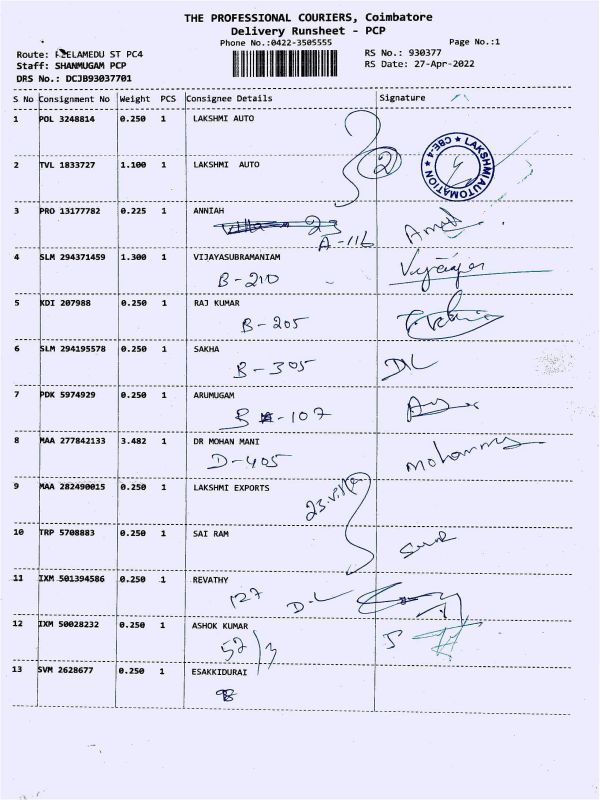 THE PROFESSIONAL COURIERS, Coimbatore
Delivery Runsheet - PCP
Phone No.:0422-3505555 Page No.:1
Route: PEELAMEDU ST PC4 RS No.: 930377
Staff: SHANMUGAM PCP RS Date: 27-Apr-2022
DRS No.: DCJB93037701
S No Consignment No Weight PCS Consignee Details Signature
1 POL 3248814 0.250 1 LAKSHMI AUTO
2
LAKSHMI AUTOMATION ★ CBE-4 ★
2 TVL 1833727 1.100 1 LAKSHMI AUTO
3 PRO 13177782 0.225 1 ANNIAH
23
A-116
4 SLM 294371459 1.300 1 VIJAYASUBRAMANIAM
B-210
5 KDI 207988 0.250 1 RAJ KUMAR
B-205
6 SLM 294195578 0.250 1 SAKHA
B-305 D/L
7 PDK 5974929 0.250 1 ARUMUGAM
B -107
8 MAA 277842133 3.482 1 DR MOHAN MANI
D-405
9 MAA 282490015 0.250 1 LAKSHMI EXPORTS
10 TRP 5708883 0.250 1 SAI RAM
11 IXM 501394586 0.250 1 REVATHY
127 D.L
12 IXM 50028232 0.250 1 ASHOK KUMAR
52/3
13 SVM 2628677 0.250 1 ESAKKIDURAI
98